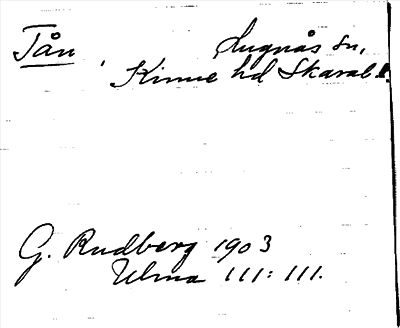 Tån, Lugnås sn,
Kinne hd Skarab.l.
G. Rudberg 1903
Ulma 111:111.